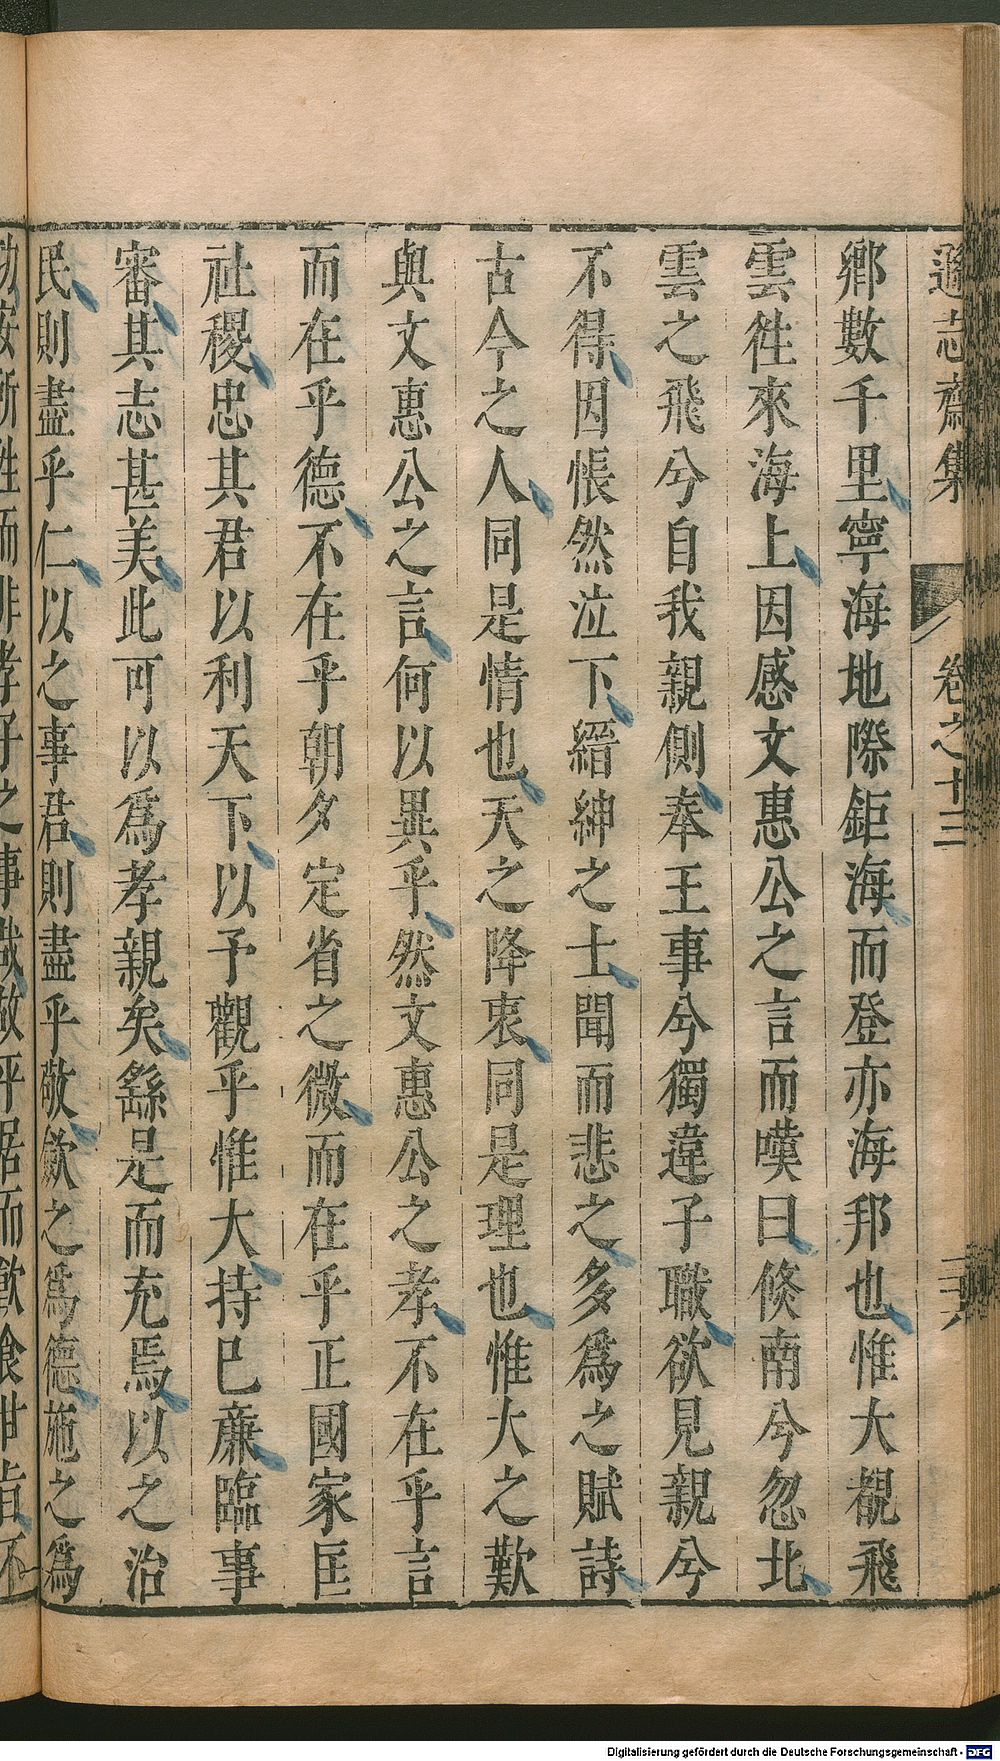 遜志齋集
卷之十三
鄉數千里寧海地際鉅海而登亦海邦也惟大覩飛
雲徃來海上因感文惠公之言而嘆曰倐南兮忽北
雲之飛兮自我親側奉王事兮獨違子職欲見親兮
不得因悵然泣下縉紳之士聞而悲之多爲之賦詩
古今之人同是情也天之降衷同是理也惟大之歎
與文惠公之言何以異乎然文惠公之孝不在乎言
而在乎德不在乎朝夕定省之微而在乎正國家匡
社稷忠其君以利天下以予觀乎惟大持巳亷臨事
審其志甚美此可以爲孝親矣繇是而充焉以之治
民則盡乎仁以之事君則盡乎敬歛之爲德施之爲
所姓而非孝子之事哉故平居而飲食甘旨不
Digitalisierung gefördert durch die Deutsche Forschungsgemeinschaft - DFG